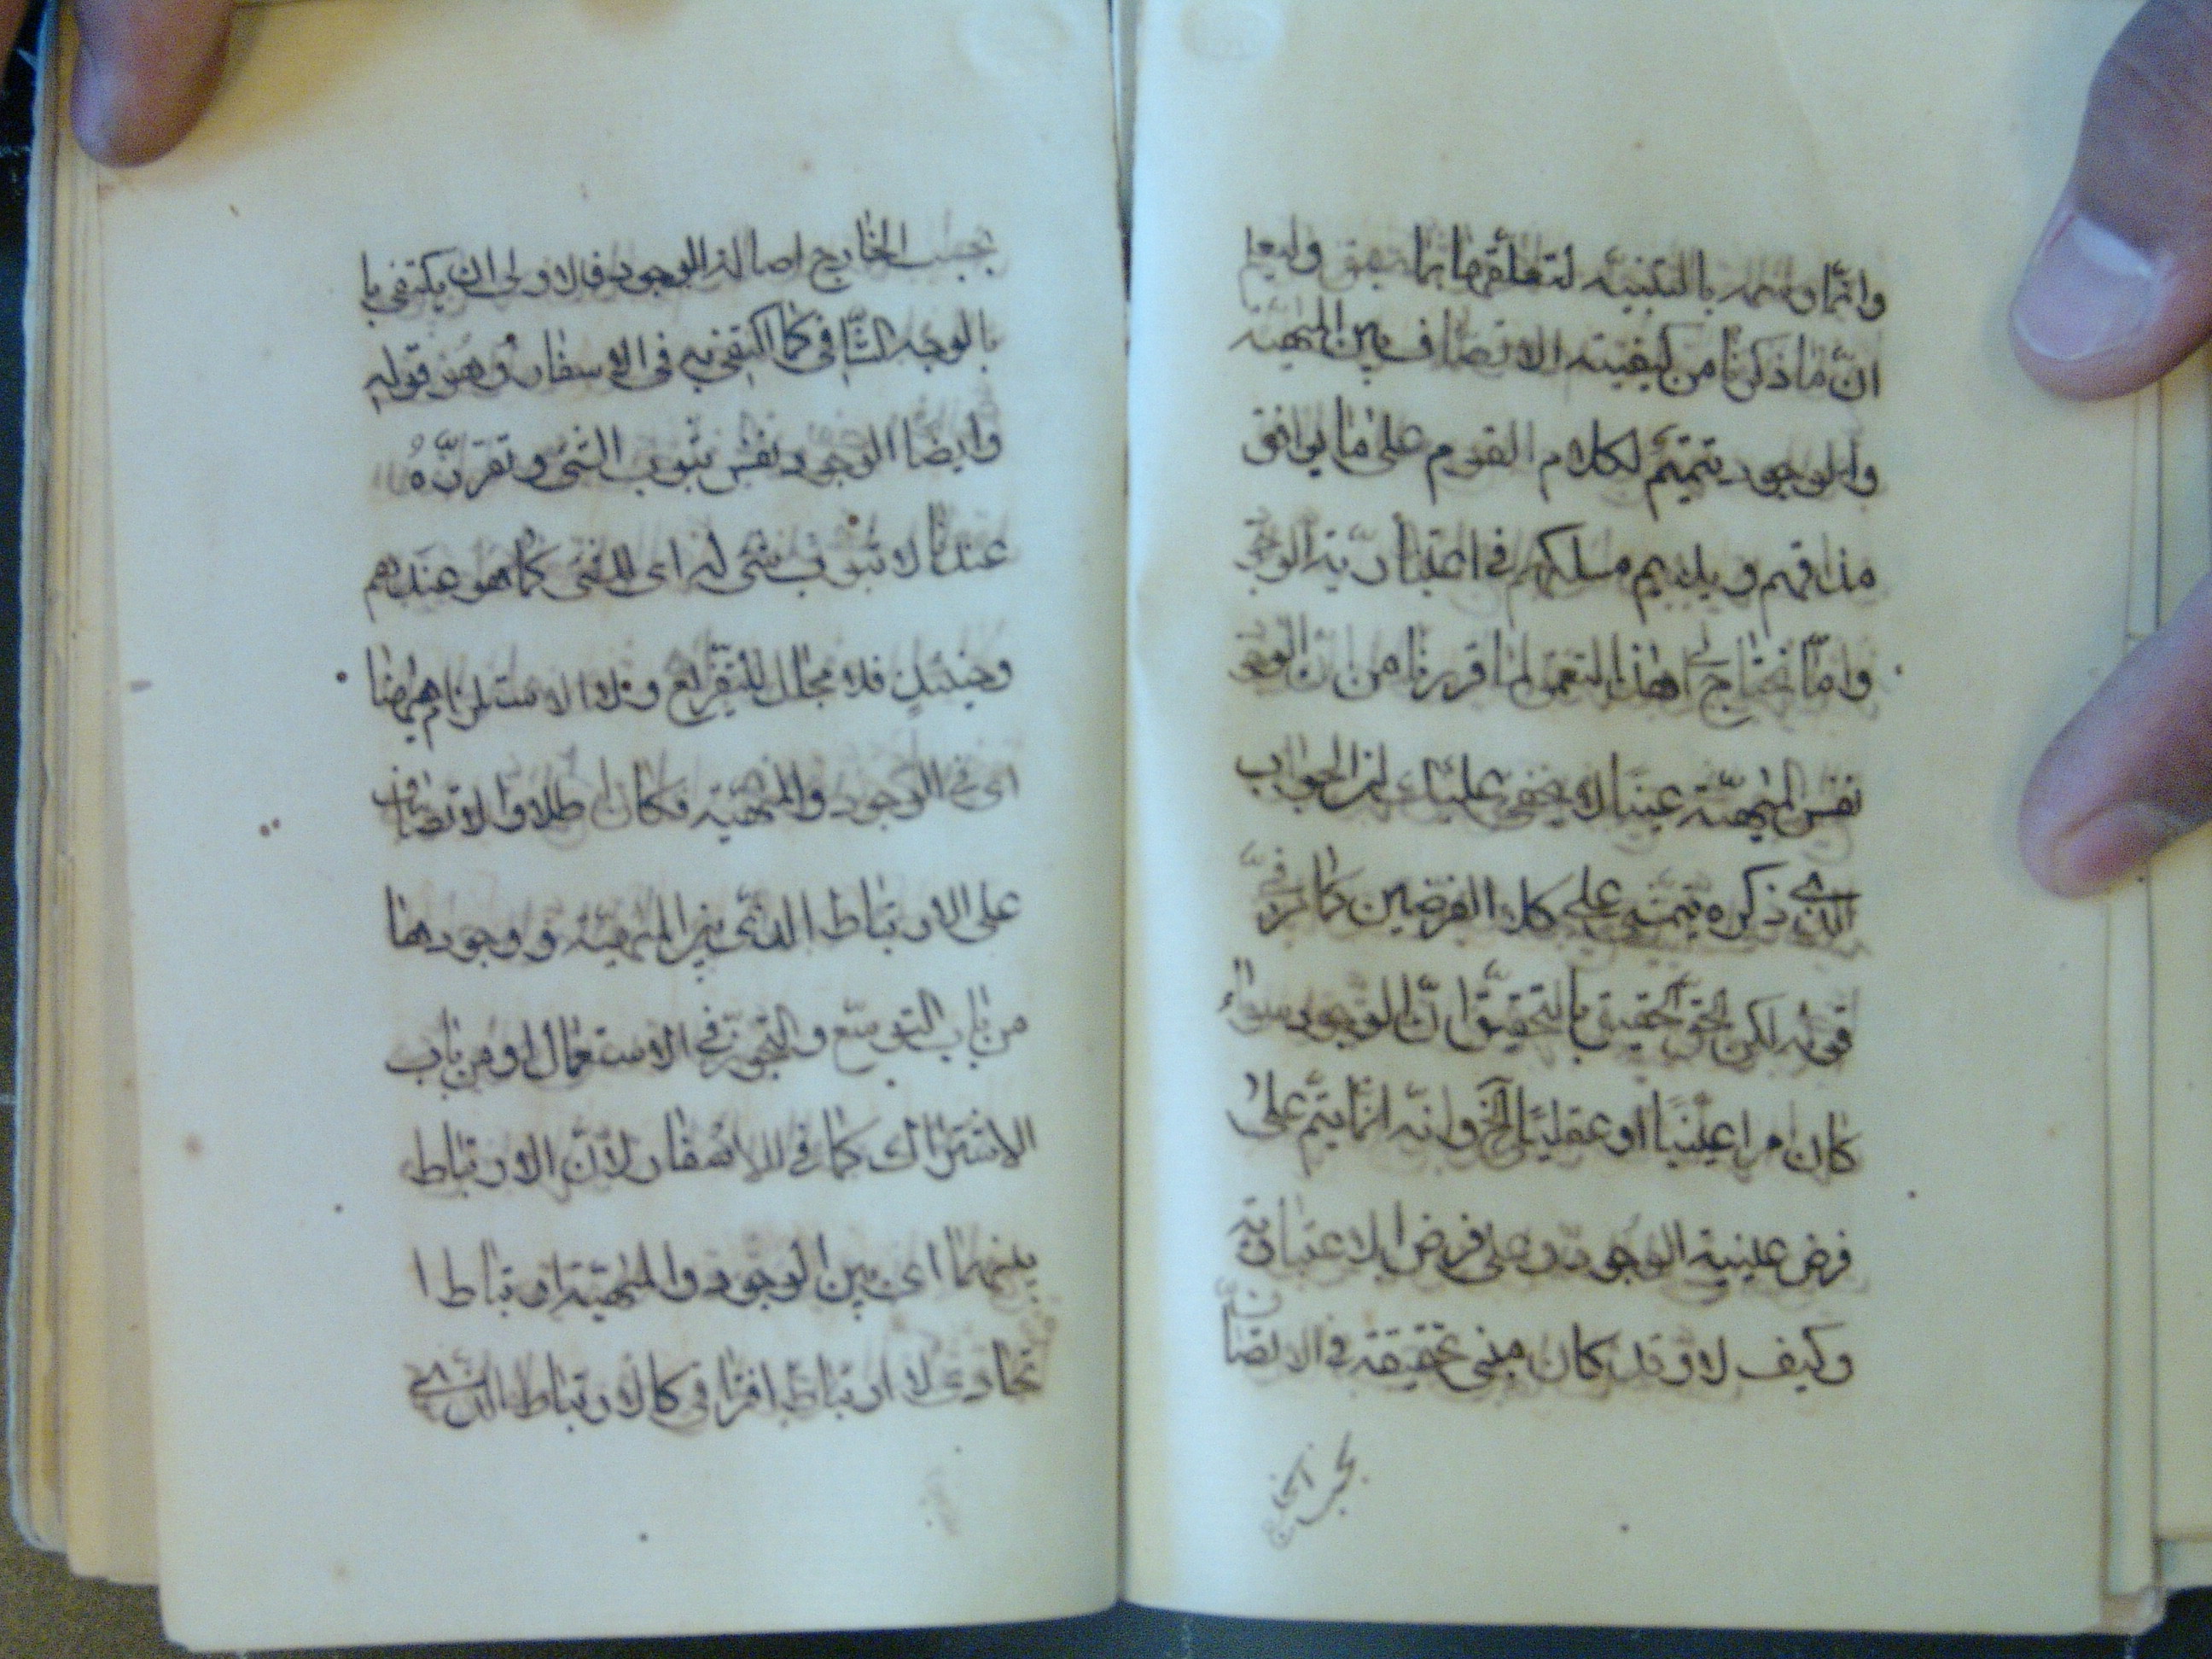 وانما وسمه بالتنبيه لتعلقها بما سبق وليعلم
ان ما ذكرنا من كيفيته الاتصاف بين المهية
والوجود يتمم لكلام القوم على ما يوافق
مذاقهم ويلايم مسلكهم فى اعتبارية الوجود
واما نحتاج لهذا التعمق لما قررنا من ان الوجود
نفس المهية عينا لا يخفى عليك ان الجواب
الذى ذكره يتمشى على كلا الفرضين كما
قوله لكن الحق الحقيق بالتحقيق ان الوجود سواء
كان امرا عينيا او عقليا الخ وانه انما يتم على
فرض عينية الوجود وعلى فرض الاعتبارية
وكيف لا وقد كان مبنى تحقيقه فى الاتصاف
بحسب الخا
بحسب الخارج اصالة الوجود فالاولى ان يكتفى با
بالوجه الثانى كما اكتفى به فى الاسفار وهو قوله
وايضا الوجود نفس ثبوت الشئ وتقرره
عندنا لا ثبوت شئ له اى للشئ كما هو عندهم
وحينئذ فلا مجال للتفريع ولا الاستلزام هيهنا
اى فى الوجود والمهية فكان اطلاق الاتصاف
على الارتباط الذى بين المهية ووجودها
من باب التوسع والتجوز فى الاستعمال او من باب
الاشتراك كما فى للاسفار لان الارتباط
بينهما اى بين الوجود والمهية ارتباط ا
تحادى لا ارتباط افتراقى كالارتباط الذى